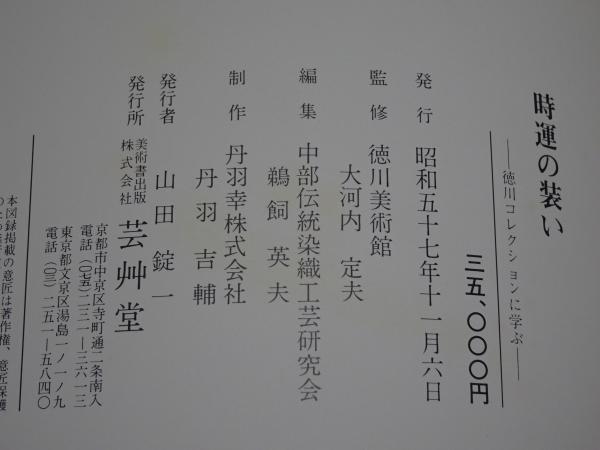 時運の装い
――徳川コレクションに学ぶ――
三五、〇〇〇円
発行 昭和五十七年十一月六日
監修 徳川美術館
大河内定夫
編集 中部伝統染織工芸研究会
鵜飼英夫
制作 丹羽幸株式会社
丹羽吉輔
発行者 山田錠一
発行所 美術書出版
株式会社 芸艸堂
京都市中京区寺町通二条南入
電話(〇七五)二三一―三六一三
東京都文京区湯島一ノ一ノ九
電話(〇三)二五一―五八四〇
本図録掲載の意匠は著作権、意匠保護